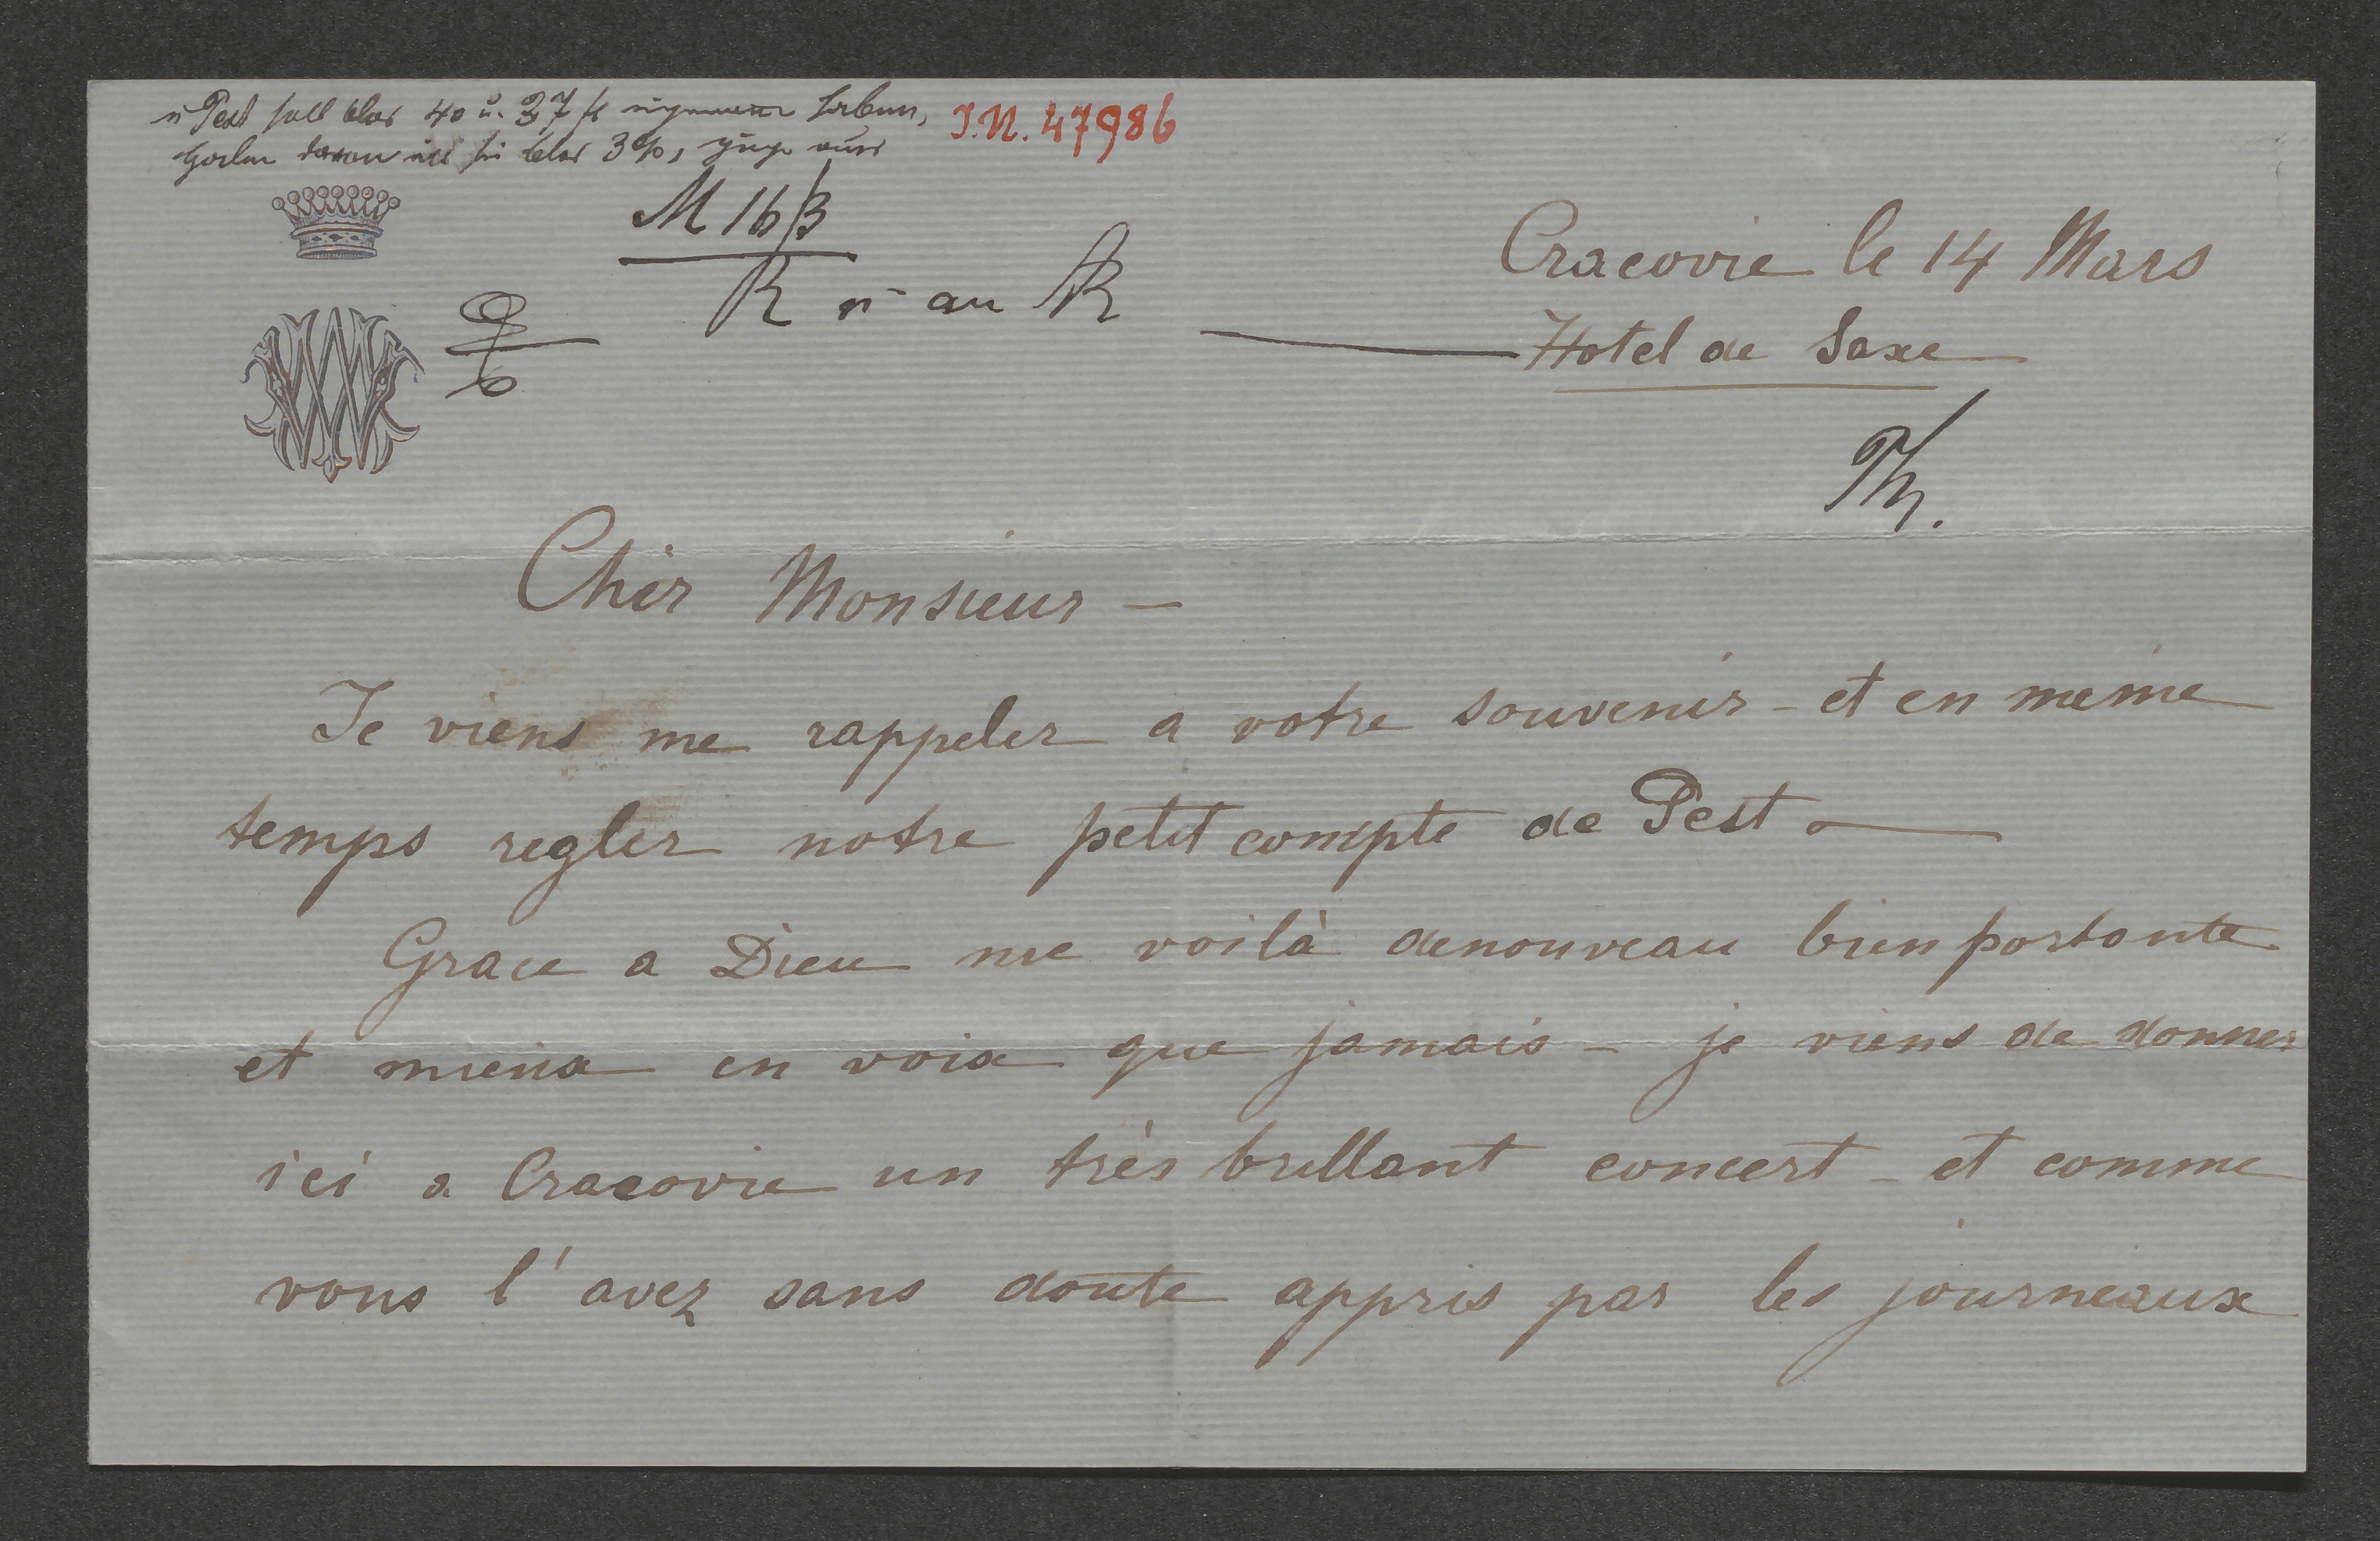 Pest soll blos 40 u. 37 fl
blos 3%,
I.N. 47986
M 16/3
R n an R
Cracovie le 14 Mars
Hotel de Saxe
Chèr Monsieur —
Je viens me rappeler a votre souvenir - et en meme
temps regler notre petit compte de Pest
Grace a Dieu me voilà denouveau bien portante
et mieux en voix que jamais - je viens de donner
ici a Cracovie un très brillant concert - et comme
vous l'avez sans doute appris par les journeaux